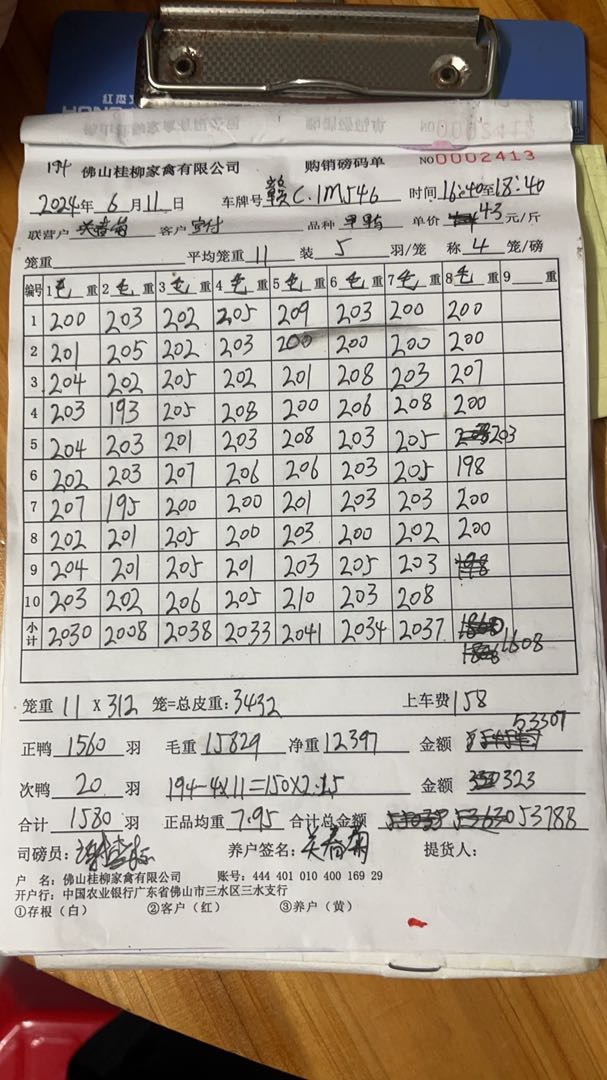 红杰
194 佛山桂柳家禽有限公司 购销磅码单 NO0002413
2024年 6月 11日 车牌号 赣C.1M546 时间 16:40至18:40
联营户 关春菊 客户 品种 单价 43 元/斤
笼重 平均笼重 11 装 5 羽/笼 称 4 笼/磅
编号 1毛重 2毛重 3毛重 4毛重 5毛重 6毛重 7毛重 8毛重 9 重
1 200 203 202 205 209 203 200 200
2 201 205 202 203 200 200 200 200
3 204 202 205 202 201 208 203 207
4 203 193 205 208 200 206 208 200
5 204 203 201 203 208 203 205 203
6 202 203 207 206 206 203 205 198
7 207 195 200 200 201 203 203 200
8 202 201 205 200 203 200 202 200
9 204 201 205 201 203 205 203 198
10 203 202 206 205 210 203 208
小计 2030 2008 2038 2033 2041 2034 2037 1608
笼重 11 X 312 笼=总皮重: 3432 上车费 158
正鸭 1560 羽 毛重 15829 净重 12397 金额 53307
次鸭 20 羽 194-4X11=150X2.15 金额 323
合计 1580 羽 正品均重 7.95 合计总金额 53788
司磅员: 养户签名: 关春菊 提货人:
户 名: 佛山桂柳家禽有限公司 账号: 444 401 010 400 169 29
开户行: 中国农业银行广东省佛山市三水区三水支行
①存根（白） ②客户（红） ③养户（黄）